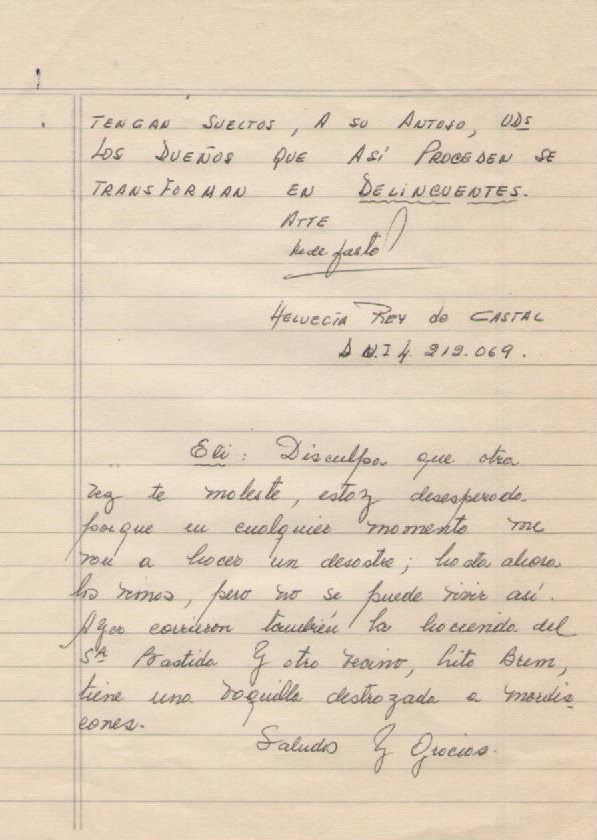 TENGAN SUELTOS, A SU ANTOJO, UDS
LOS DUEÑOS QUE ASÍ PROCEDEN SE
TRANSFORMAN EN DELINCUENTES.
ATTE
HELVECIA REY de CASTAL
D.N.I 4.212.069.
Eli: Disculpa que otra
vez te moleste, estoy desesperada
porque en cualquier momento me
van a hacer un desastre; hasta ahora
los vimos, pero no se puede vivir así.
Ayer corrieron también la hacienda del
Sr Bastida y otro vecino, Lito Brem,
tiene una vaquilla destrozada a mordis
cones.
Saludos y Gracias.